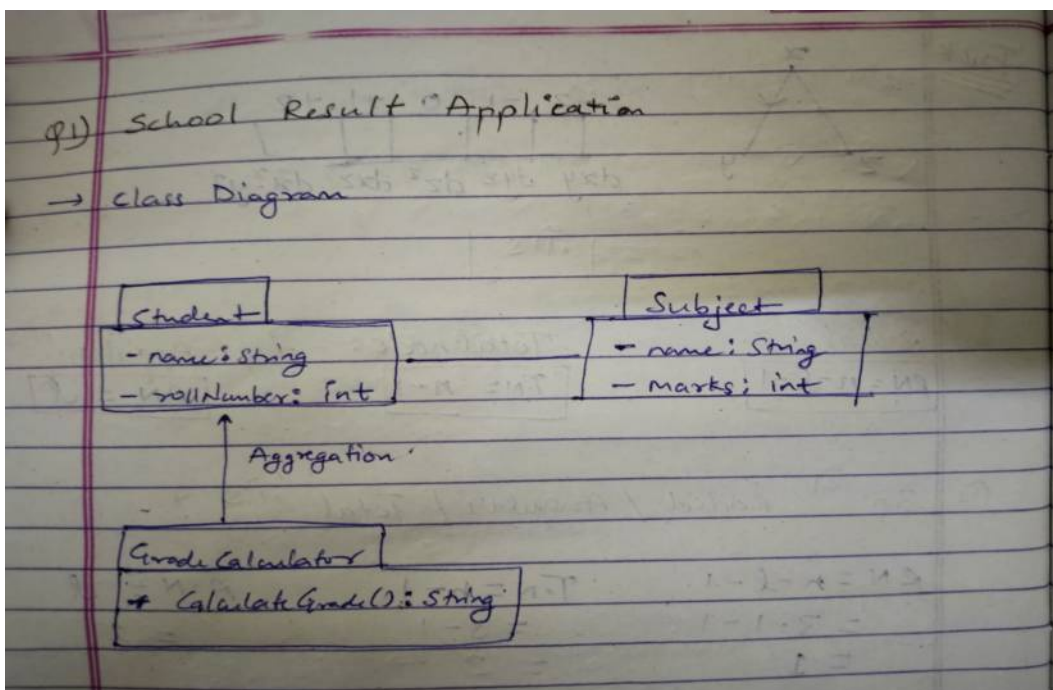 Q1) School Result Application
→ class Diagram
Student
- name: String
- rollNumber: int
Subject
- name: String
- marks: int
Aggregation
GradeCalculator
+ CalculateGrade(): String